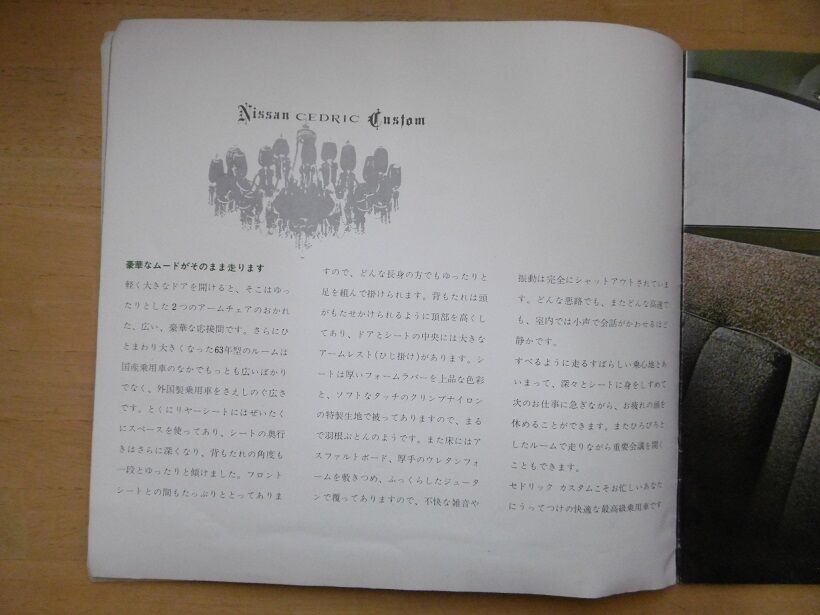 Nissan CEDRIC Custom
豪華なムードがそのまま走ります
軽く大きなドアを開けると、そこはゆっ
たりとした2つのアームチェアのおかれ
た、広い、豪華な応接間です。さらにひ
とまわり大きくなった63年型のルームは
国産乗用車のなかでもっとも広いばかり
でなく、外国製乗用車をさえしのぐ広さ
です。とくにリヤーシートにはぜいたく
にスペースを使ってあり、シートの奥行
きはさらに深くなり、背もたれの角度も
一段とゆったりと傾けました。フロント
シートとの間もたっぷりととってありま
すので、どんな長身の方でもゆったりと
足を組んで掛けられます。背もたれは頭
がもたせかけられるように頂部を高くし
てあり、ドアとシートの中央には大きな
アームレスト(ひじ掛け)があります。シ
ートは厚いフォームラバーを上品な色彩
と、ソフトなタッチのクリンプナイロン
の特製生地で被ってありますので、まる
で羽根ぶとんのようです。また床にはア
スファルトボード、厚手のウレタンフォ
ームを敷きつめ、ふっくらしたジュータ
ンで覆ってありますので、不快な雑音や
振動は完全にシャットアウトされていま
す。どんな悪路でも、またどんな高速で
も、室内では小声で会話がかわせるほど
静かです。
すべるように走るすばらしい乗心地とあ
いまって、深々とシートに身をしずめて
次のお仕事に急ぎながら、お疲れの頭を
休めることができます。またひろびろと
したルームで走りながら重要会議を開く
こともできます。
セドリック カスタムこそお忙しいあなた
にうってつけの快適な最高級乗用車です